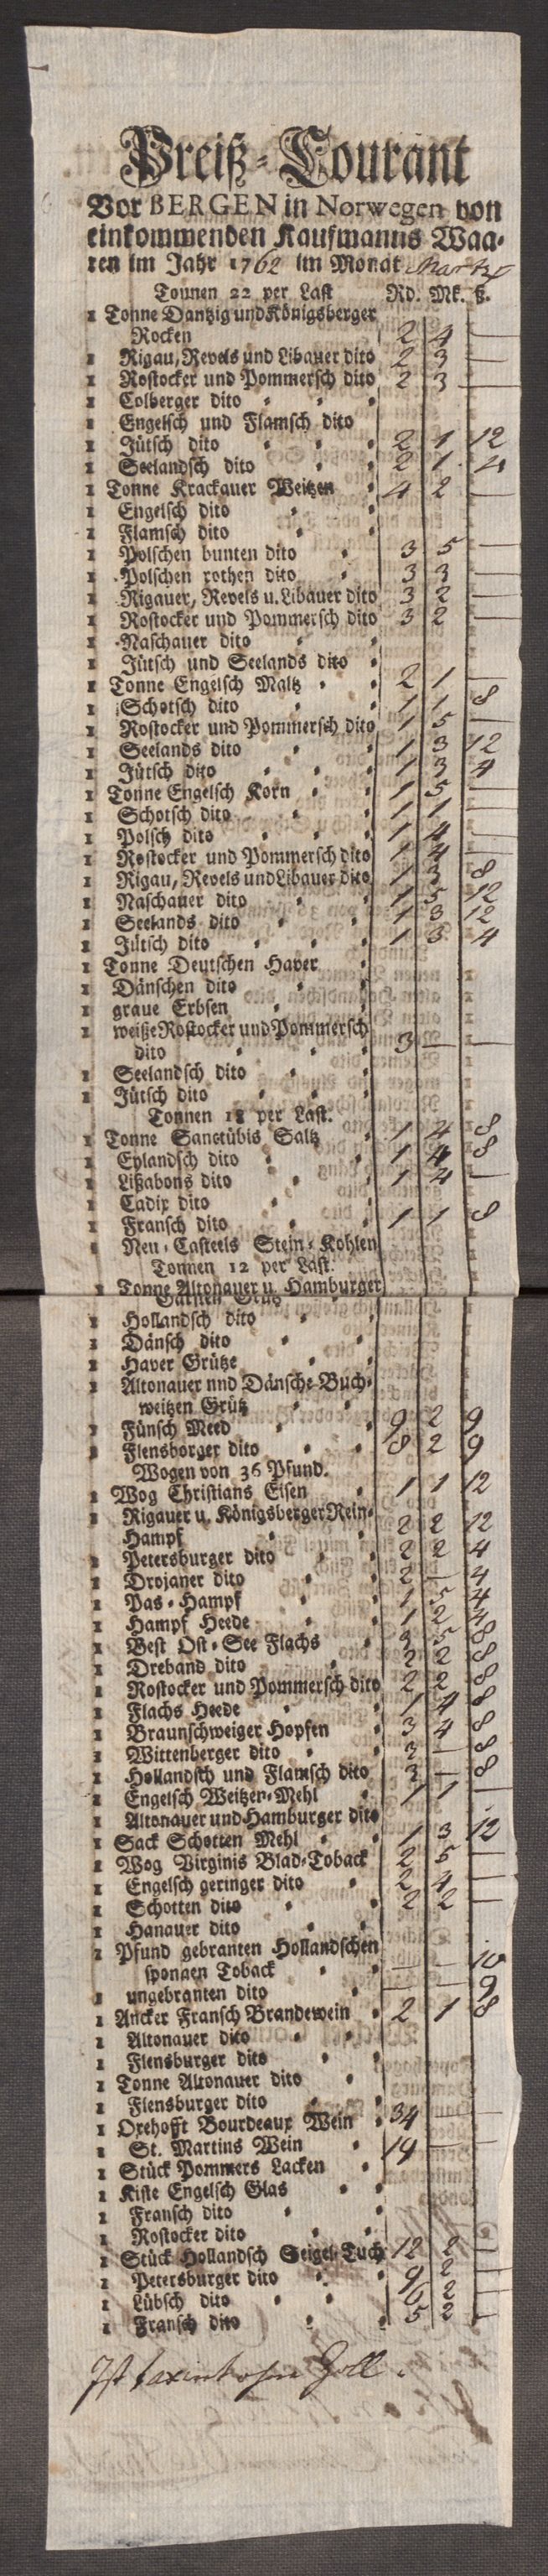 Preiß-Courant
Vor BERGEN in Norwegen von
einkommenden Kaufmanns Waa-
ren im Jahr 1762 im Monat Martzy
Tonnen 22 per Last Rd. Mk. ß.
1 Tonne Dantzig und Königsberger
Rocken 2 4 —
1 Rigau, Revels und Libauer dito 2 3 —
1 Rostocker und Pommersch dito 2 3 —
1 Colberger dito
1 Engelsch und Flamsch dito
1 Jütsch dito 2 1 12
1 Seelandsch dito 2 1 4
1 Tonne Krackauer Weitzen 4 2 —
1 Engelsch dito
1 Flamsch dito
1 Polschen bunten dito 3 5 —
1 Polschen rothen dito 3 3 —
1 Rigauer, Revels u. Libauer dito 3 2 —
1 Rostocker und Pommersch dito 3 2 —
1 Naschauer dito
1 Jütsch und Seelands dito
1 Tonne Engelsch Maltz 2 1 —
1 Schotsch dito 1 1 8
1 Rostocker und Pommersch dito 1 5 —
1 Seelands dito 1 3 12
1 Jütsch dito 1 3 4
1 Tonne Engelsch Korn 1 5 —
1 Schotsch dito 1 1 —
1 Polsch dito 1 4 —
1 Rostocker und Pommersch dito 1 4 —
1 Rigau, Revels und Libauer dito 1 3 8
1 Naschauer dito 1 3 12
1 Seelands dito 1 3 12
1 Jütsch dito 1 3 4
1 Tonne Deutschen Haver
1 Dänschen dito
1 graue Erbsen
1 weiße Rostocker und Pommersch
dito 3 — —
1 Seelandsch dito
1 Jütsch dito
Tonnen 18 per Last.
1 Tonne Sanctübis Saltz 1 4 8
1 Eylandsch dito 1 4 8
1 Lißabons dito 1 4 —
1 Cadix dito
1 Fransch dito 1 1 8
1 Neu-Casteels Stein-Kohlen
Tonnen 12 per Last.
1 Tonne Altonauer u. Hamburger
Garsten Grütz
1 Hollandsch dito
1 Dänsch dito
1 Haver Grütze
1 Altonauer nnd Dänsche Buch-
weitzen Grütz
1 Fünsch Meed 9 2 9
1 Flensborger dito 8 2 9
Wogen von 36 Pfund.
1 Wog Christians Eisen 1 1 12
1 Rigauer u. Königsberger Rein-
Hampf 2 2 12
1 Petersburger dito 2 2 4
1 Drojaner dito 2 — 4
1 Pas-Hampf 1 5 4
1 Hampf Heede 1 2 8
1 Best Ost-See Flachs 2 5 8
1 Dreband dito 2 2 8
1 Rostocker und Pommersch dito 2 2 8
1 Flachs Heede 1 4 8
1 Braunschweiger Hopfen 3 4 8
1 Wittenberger dito 3 — 8
1 Hollandsch und Flamsch dito 3 — 8
1 Engelsch Weitzen-Mehl 1 1 —
1 Altonauer und Hamburger dito
1 Sack Schotten Mehl 1 3 12
1 Wog Virginis Blad-Toback 2 5 —
1 Engelsch geringer dito 2 4 —
1 Schotten dito 2 2 —
1 Hanauer dito
1 Pfund gebranten Hollandschen
sponnen Toback — — 10
1 ungebranten dito — — 9
1 Ancker Fransch Brandewein 2 1 8
1 Altonauer dito
1 Flensburger dito
1 Tonne Altonauer dito
1 Flensburger dito
1 Oxehofft Bourdeaux Wein 34 — —
1 St. Martins Wein 19 — —
1 Stück Pommers Lacken
1 Kiste Engelsch Glas
1 Fransch dito
1 Rostocker dito
1 Stück Hollandsch Seigel-Tuch 12 2 —
1 Petersburger dito 9 2 —
1 Lübsch dito 6 2 —
1 Fransch dito 5 2 —
Ist Zoll.